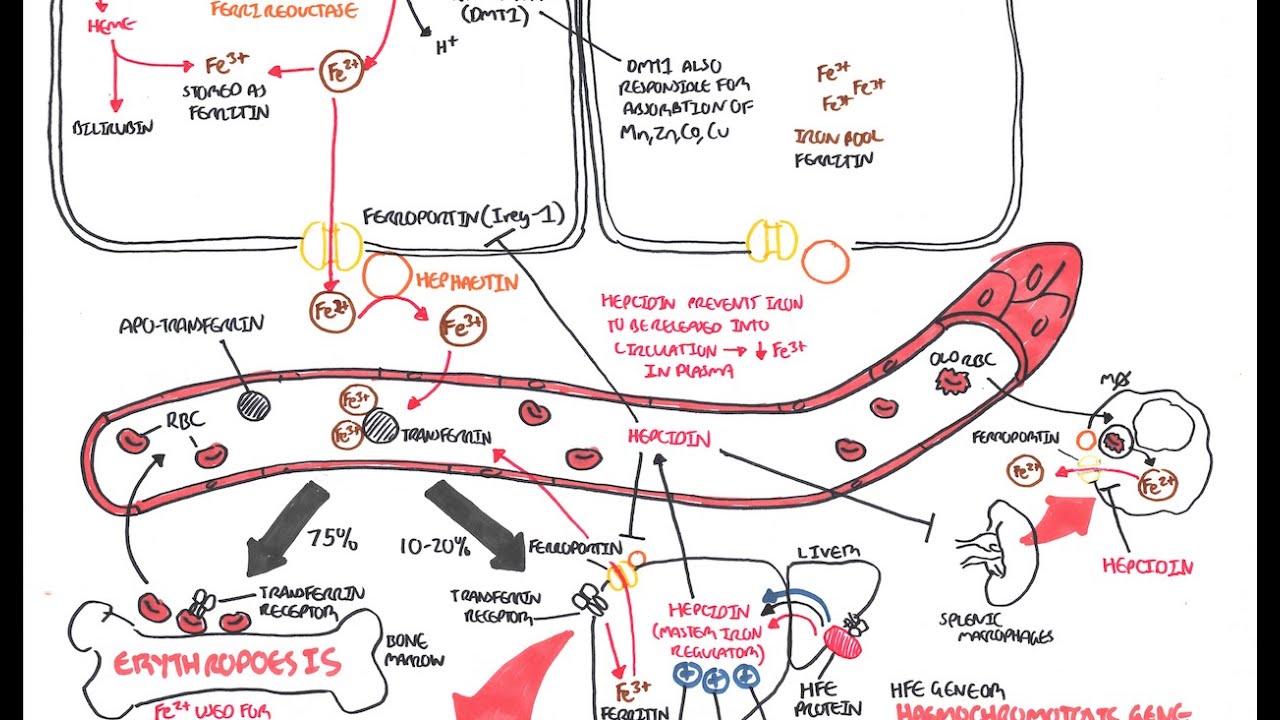 FERRI REDUCTASE
HEME
Fe3+
STORED AS
FERRITIN
Fe2+
BILIRUBIN
(DMT1)
H+
DMT1 ALSO
RESPONSIBLE FOR
ABSORBTION OF
Mn, Zn, Co, Cu
Fe3+
Fe3+
Fe3+
IRON POOL
FERRITIN
FERROPORTIN (Ireg-1)
HEPHAESTIN
Fe2+
Fe3+
APO-TRANSFERRIN
HEPCIDIN PREVENTS IRON
TO BE RELEASED INTO
CIRCULATION → ↓ Fe3+
IN PLASMA
OLD RBC
MØ
RBC
Fe3+
Fe3+
TRANSFERRIN
HEPCIDIN
FERROPORTIN
Fe2+
Fe2+
HEPCIDIN
75%
10-20%
FERROPORTIN
LIVER
TRANSFERRIN
RECEPTOR
TRANSFERRIN
RECEPTOR
BONE
MARROW
ERYTHROPOESIS
Fe2+ USED FOR
HEPCIDIN
(MASTER IRON
REGULATOR)
+
+
+
Fe3+
FERRITIN
HFE
PROTEIN
SPLENIC
MACROPHAGES
HFE GENE OR
HAEMOCHROMATOSIS GENE